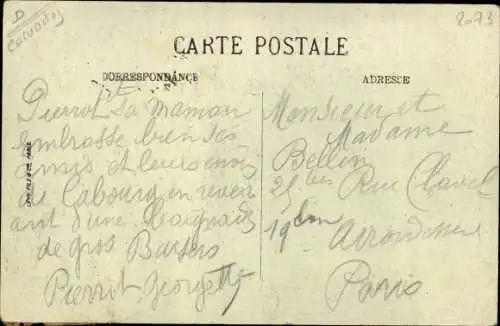 D
Calvados
2073
CARTE POSTALE
CORRESPONDANCE
ADRESSE
Pierrot et sa maman
embrasse bien ses
amis et leurs envoi
de Cabourg en reven
ant d'une Baignade
de gros Baisers
Pierrot Georgette
Monsieur et
Madame
Bellon
25 bis Rue
19em
Arrondissem
Paris